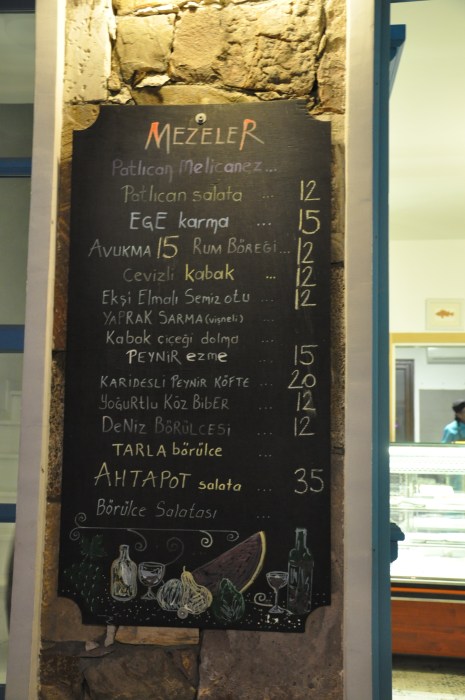 MEZELER
Patlıcan Melicanez...
Patlıcan salata 12
EGE karma ... 15
AVUKMA 15 RUM BÖREĞİ... 12
Cevizli kabak ... 12
Ekşi Elmalı Semiz otu ... 12
YAPRAK SARMA (vişneli) ...
Kabak çiçeği dolma ...
PEYNİR ezme ... 15
KARİDESLİ PEYNİR KÖFTE ... 20
YOĞURtlu KÖZ BİBER ... 12
DENİZ BÖRÜLCESİ ... 12
TARLA börülce ...
AHTAPOT salata ... 35
Börülce Salatası ...